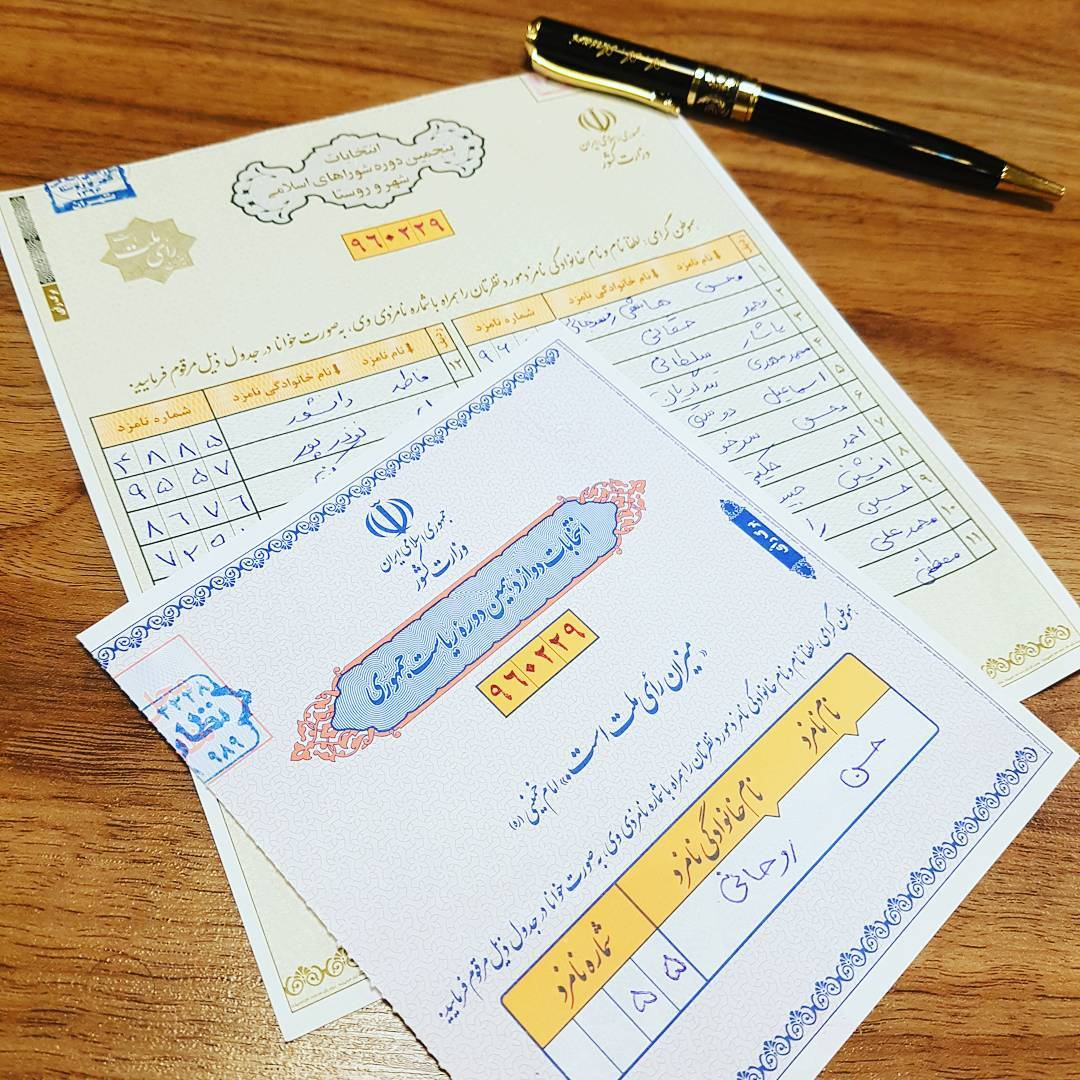 جمهوری اسلامی ایران
وزارت کشور
انتخابات
پنجمین دوره شوراهای اسلامی
شهر و روستا
رای ملت
۹۶۰۲۲۹
هموطن گرامی، لطفا نام و نام خانوادگی نامزد مورد نظرتان را همراه با شماره نامزدی وی، به صورت خوانا در جدول ذیل مرقوم فرمایید:
نام نامزد نام خانوادگی نامزد شماره نامزد
۱ محسن هاشمی رفسنجانی
۲ وحید حقانی
۳ یاشار سلطانی
۴ محمد مهدی تندگویان
۵ اسماعیل دوستی
۶ محسن سرخو
۷ احمد حکیمی
۸ افشین
۹ حسین
۱۰ محمد علی
۱۱ مصطفی
نام نامزد نام خانوادگی نامزد شماره نامزد
۱۲ فاطمه دانشور ۴۸۸۵
نوذرپور ۹۵۵۷
۸۶۷۶
۷۲۵۰
جمهوری اسلامی ایران
وزارت کشور
برگ رای
انتخابات دوازدهمین دوره ریاست جمهوری
۹۶۰۲۲۹
«میزان رأی ملت است.» امام خمینی (ره)
هموطن گرامی، لطفا نام و نام خانوادگی نامزد مورد نظرتان را همراه با شماره نامزدی وی، به صورت خوانا در جدول ذیل مرقوم فرمایید:
نام نامزد نام خانوادگی نامزد شماره نامزد
حسن روحانی ۵۵
۲۲۲۸
۹۸۹